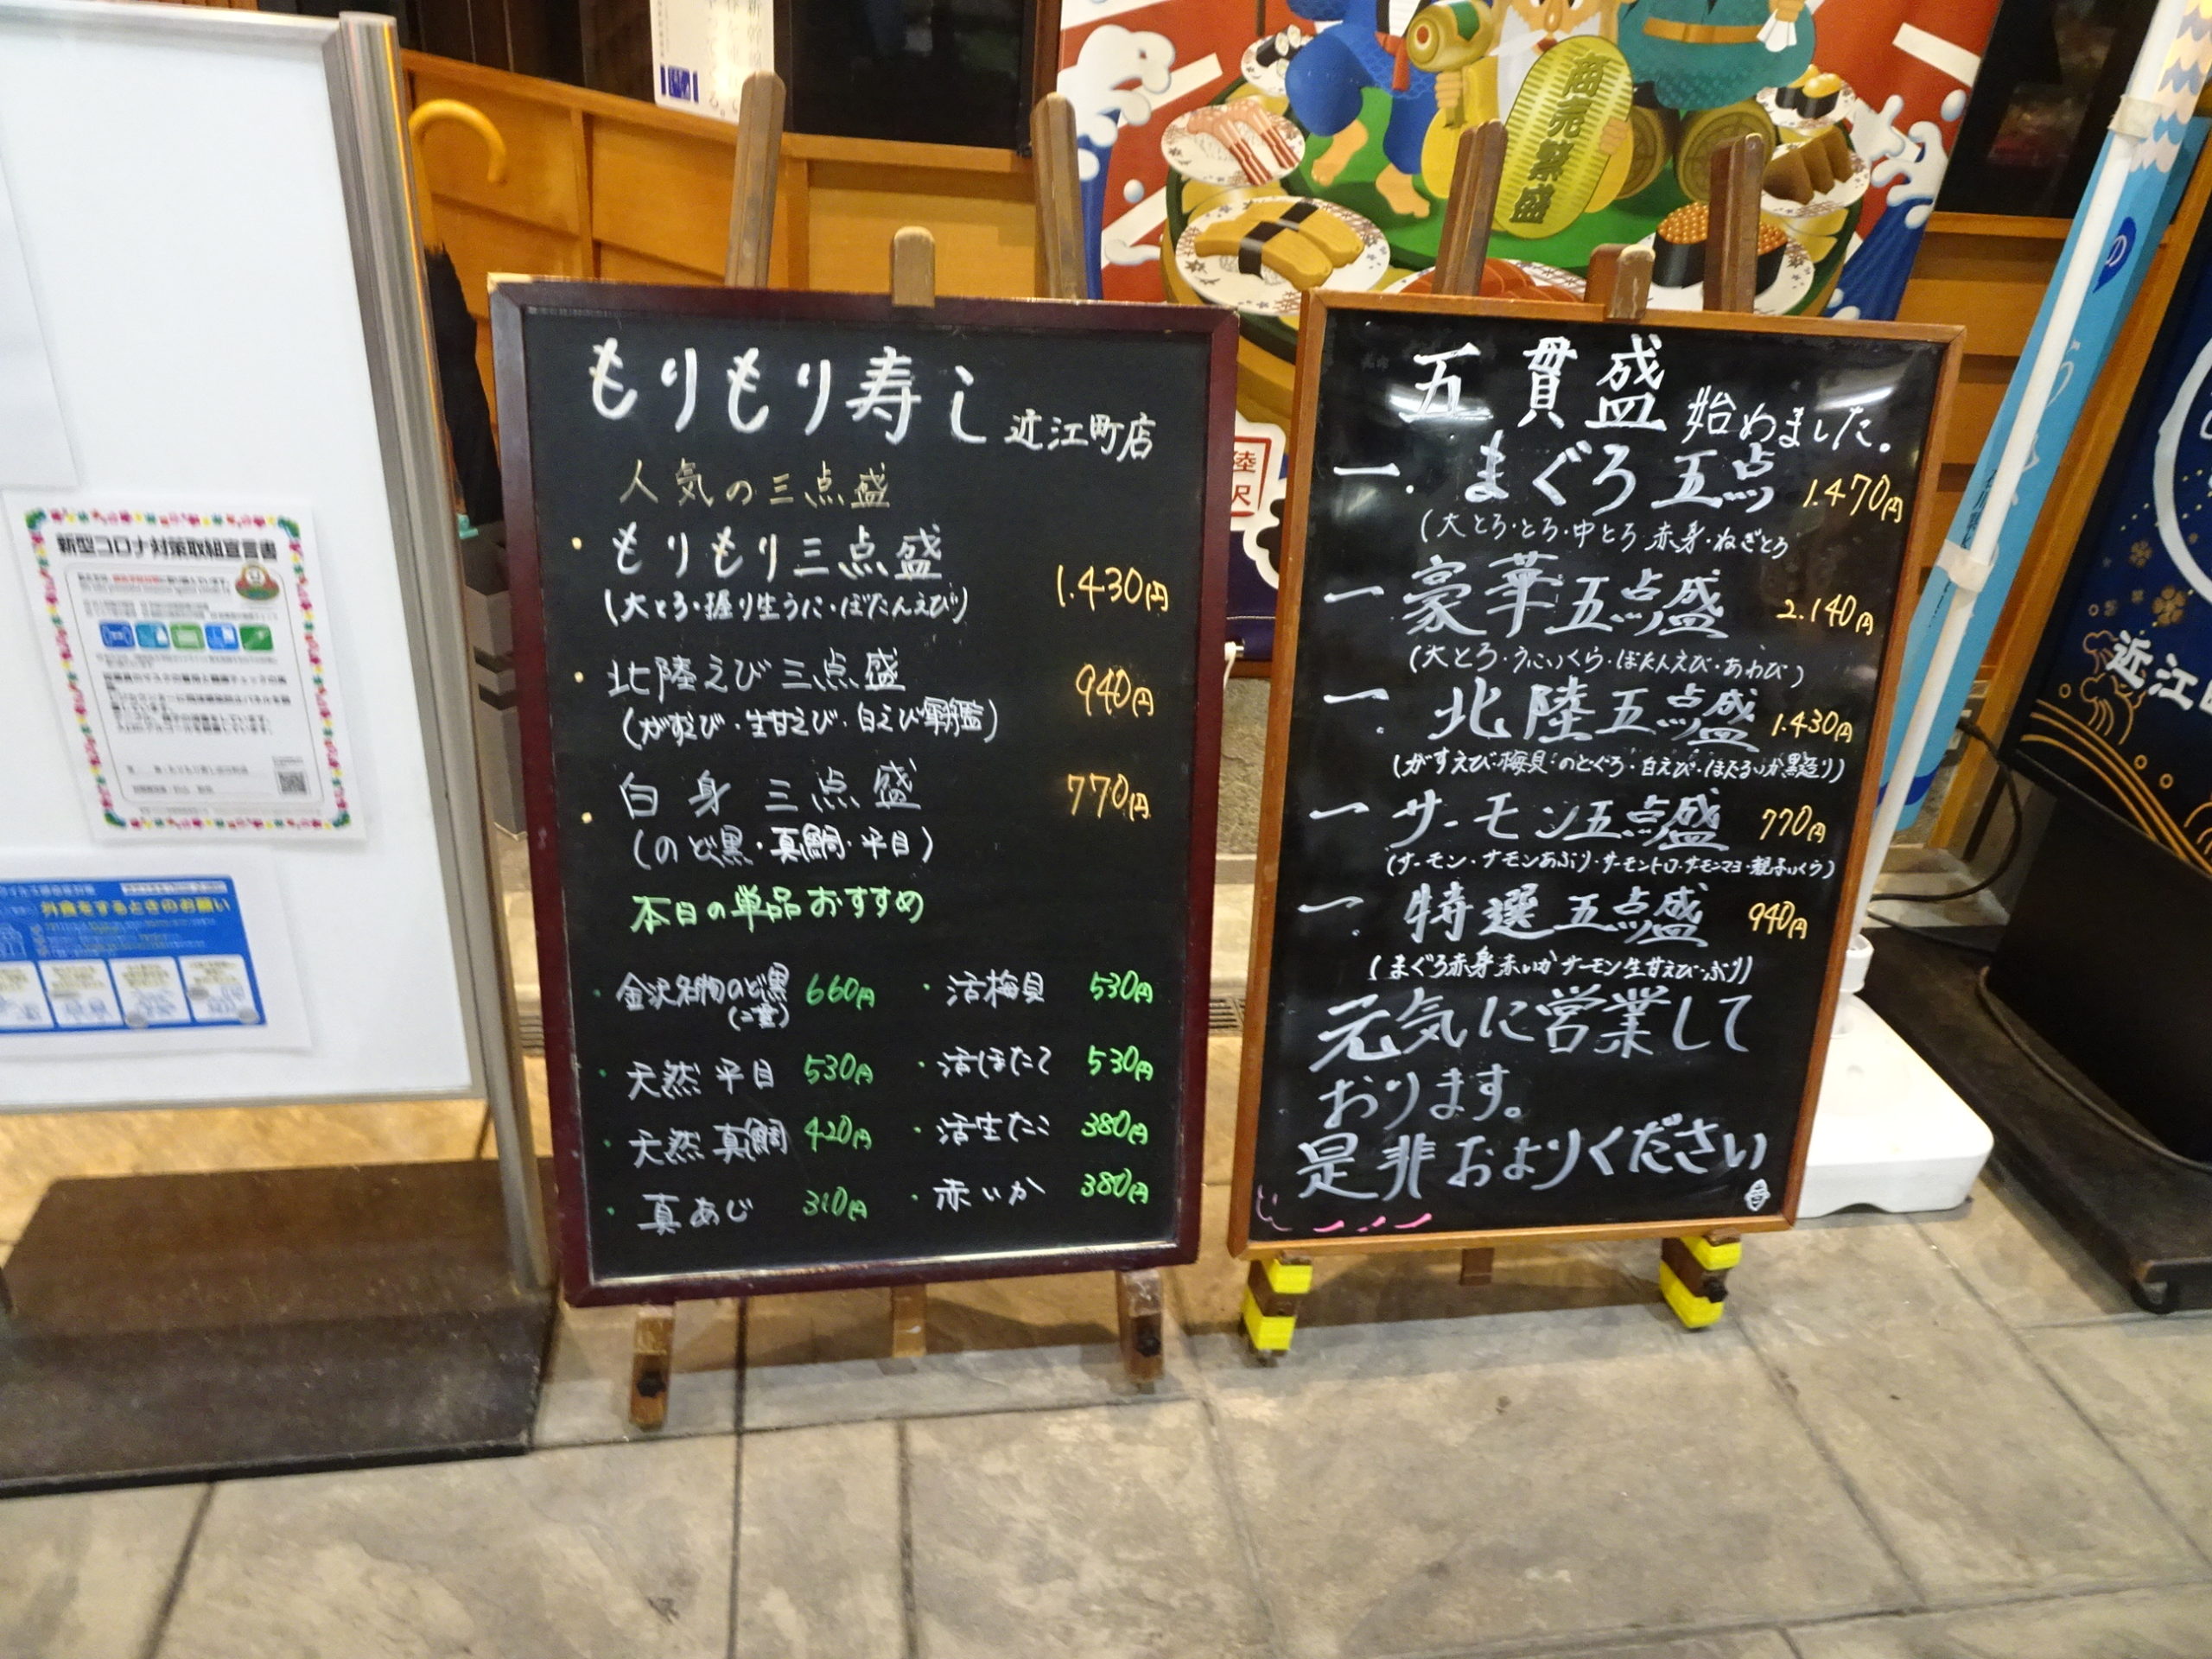 新型コロナ対策取組宣言書
外食をするときのお願い
商売繁盛
もりもり寿し 近江町店
人気の三点盛
・もりもり三点盛 1.430円
(大とろ・握り生うに・ぼたんえび)
・北陸えび三点盛 940円
(がすえび・生甘えび・白えび軍艦)
・白身三点盛 770円
(のど黒・真鯛・平目)
本日の単品おすすめ
・金沢名物のど黒 660円 ・活梅貝 530円
(二貫)
・天然平目 530円 ・活ほたて 530円
・天然真鯛 420円 ・活生たこ 380円
・真あじ 310円 ・赤いか 380円
五貫盛 始めました。
一. まぐろ五点 1.470円
(大とろ・とろ・中とろ 赤身・ねぎとろ
一 豪華五点盛 2.140円
(大とろ・うに・いくら・ぼたんえび・あわび)
一. 北陸五点盛 1.430円
(がすえび・梅貝・のどぐろ・白えび・ほたるいか黒造り)
一 サーモン五点盛 770円
(サーモン・サーモンあぶり・サーモントロ・サーモンマヨ・親子いくら)
一. 特選五点盛 940円
(まぐろ赤身 赤いか サーモン 生甘えび・ぶり)
元気に営業して
おります。
是非およりください
近江